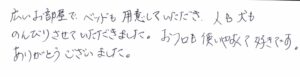 広いお部屋で、ベッドも用意していただき、人も犬も
のんびりさせていただきました。お フロも使いやすくて好きです。
ありがとうございました。